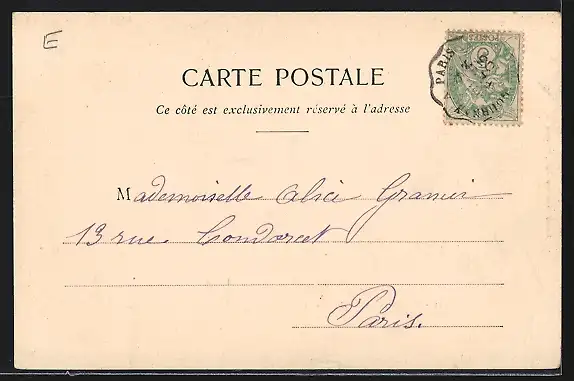 E
PARIS
CARTE POSTALE
Ce côté est exclusivement réservé à l'adresse
Mademoiselle Alice Granier
13 rue Condorcet
Paris.